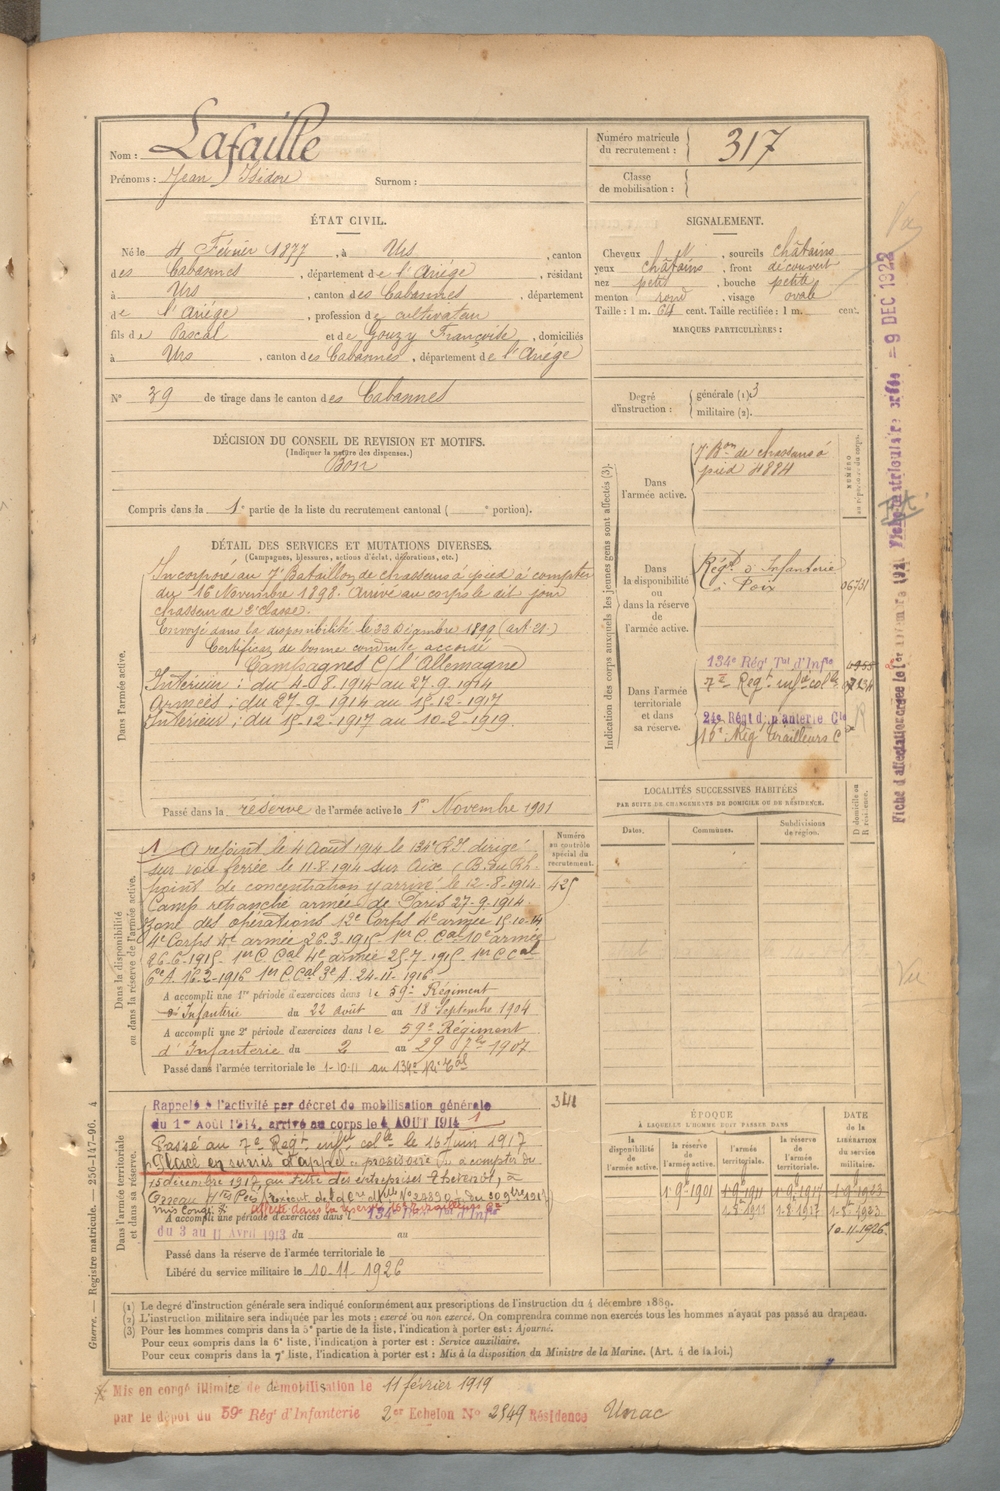 Nom : Lafaille
Prénoms : Jean Isidore Surnom :
Numéro matricule du recrutement : 317
Classe de mobilisation :
ÉTAT CIVIL.
Né le 4 Février 1877, à Urs, canton
des Cabannes, département de l'Ariège, résidant
à Urs, canton des Cabannes, département
de l'Ariège, profession de cultivateur
fils de Pascal et de Gouzy Françoise, domiciliés
à Urs, canton des Cabannes, département de l'Ariège
N° 39 de tirage dans le canton des Cabannes
SIGNALEMENT.
Cheveux , sourcils châtains
yeux châtains, front découvert
nez petit, bouche petite
menton rond, visage ovale
Taille : 1 m. 64 cent. Taille rectifiée : 1 m. cent.
MARQUES PARTICULIÈRES :
Degré d'instruction : générale (1). 3
militaire (2).
DÉCISION DU CONSEIL DE REVISION ET MOTIFS.
(Indiquer la nature des dispenses.)
Bon
Compris dans la 1e partie de la liste du recrutement cantonal ( e portion).
DÉTAIL DES SERVICES ET MUTATIONS DIVERSES.
(Campagnes, blessures, actions d'éclat, décorations, etc.)
Dans l'armée active.
Incorporé au 7e Bataillon de chasseurs à pied à compter
du 16 Novembre 1898. Arrivé au corps le dit jour
chasseur de 2e classe.
Envoyé dans la disponibilité le Décembre 1899 (art 21)
Certificat de bonne conduite accordé
Campagnes C/ l'Allemagne
Intérieur : du 4-08-1914 au 27-9-1914
Armées : du 27-9-1914 au 15-12-1917
Intérieur : du 15-12-1917 au 10-2-1919.
Passé dans la réserve de l'armée active le 1er Novembre 1901
Indication des corps auxquels les jeunes gens sont affectés (3).
Dans l'armée active.
7e Bon de chasseurs à
pied 4884
NUMÉRO au répertoire du corps.
Dans la disponibilité ou dans la réserve de l'armée active.
Régt d'Infanterie
à Foix
06731
Dans l'armée territoriale et dans sa réserve.
134e Régt Tal d'Infie
7e Régt infie colle
24e Régt d'Infanterie Cle
16e Rég tirailleurs
LOCALITÉS SUCCESSIVES HABITÉES
PAR SUITE DE CHANGEMENTS DE DOMICILE OU DE RÉSIDENCE.
Dates. Communes. Subdivisions de région. D domicile ou R résidence.
Dans la disponibilité ou dans la réserve de l'armée active.
Numéro au contrôle spécial du recrutement.
425
A rejoint le 4 Août 1914 le 134e R.I. dirigé
sur voie ferrée le 11-8-1914 sur Aix (B. du Rh.
point de concentration y arrivé le 12-8-1914
Camp retranché armée de Paris 27-9-1914
Zone des opérations 12e Corps 4e armée 15-10-14
4e Corps 4e armée 26-3-1915 1er C. Cal 10e armée
26-6-1915 1er C Cal 4e armée 25-7-1915 1er C Cal
6e A. 16-2-1916 1er C Cal 3e A. 24-11-1916
A accompli une 1re période d'exercices dans le 59e Régiment
d'Infanterie du 22 août au 18 Septembre 1904
A accompli une 2e période d'exercices dans le 59e Régiment
d'Infanterie du 2 au 29 7bre 1907
Passé dans l'armée territoriale le 1-10-11 au 134e Ri Tal
Dans l'armée territoriale et dans sa réserve.
341
Rappelé à l'activité par décret de mobilisation générale
du 1er Août 1914, arrivé au corps le 4 AOUT 1914
Passé au 7e Régt infie colle le 16 juin 1917
Placé en sursis d'appel provisoire à compter du
15 décembre 1917 au titre des entreprises Thévenot,
134e Régt Tal d'Infie
A accompli une période d'exercices dans l
du 3 au 11 Avril 1913 du au
Passé dans la réserve de l'armée territoriale le
Libéré du service militaire le 10-11-1926
ÉPOQUE
À LAQUELLE L'HOMME DOIT PASSER DANS
DATE DE LA LIBÉRATION DU service militaire.
la disponibilité de l'armée active. la réserve de l'armée active. l'armée territoriale. la réserve de l'armée territoriale.
1-9e-1901 1-9e-1911 1-9e-1917 1-9e-1923
1-8-1911 1-8-1917 1-8-1923
10-11-1926.
(1) Le degré d'instruction générale sera indiqué conformément aux prescriptions de l'instruction du 4 décembre 1889.
(2) L'instruction militaire sera indiquée par les mots : exercé ou non exercé. On comprendra comme non exercés tous les hommes n'ayant pas passé au drapeau.
(3) Pour les hommes compris dans la 5e partie de la liste, l'indication à porter est : Ajourné.
Pour ceux compris dans la 6e liste, l'indication à porter est : Service auxiliaire.
Pour ceux compris dans la 7e liste, l'indication à porter est : Mis à la disposition du Ministre de la Marine. (Art. 4 de la loi.)
Mis en congé illimité de démobilisation le 11 février 1919
par le dépôt du 59e Régt d'Infanterie 2er Echelon N° 2549 Résidence Unac
Guerre. — Registre matricule. — 256-147-96. 4
Fiche matriculaire créée - 9 DEC 1922
Vu
Vu